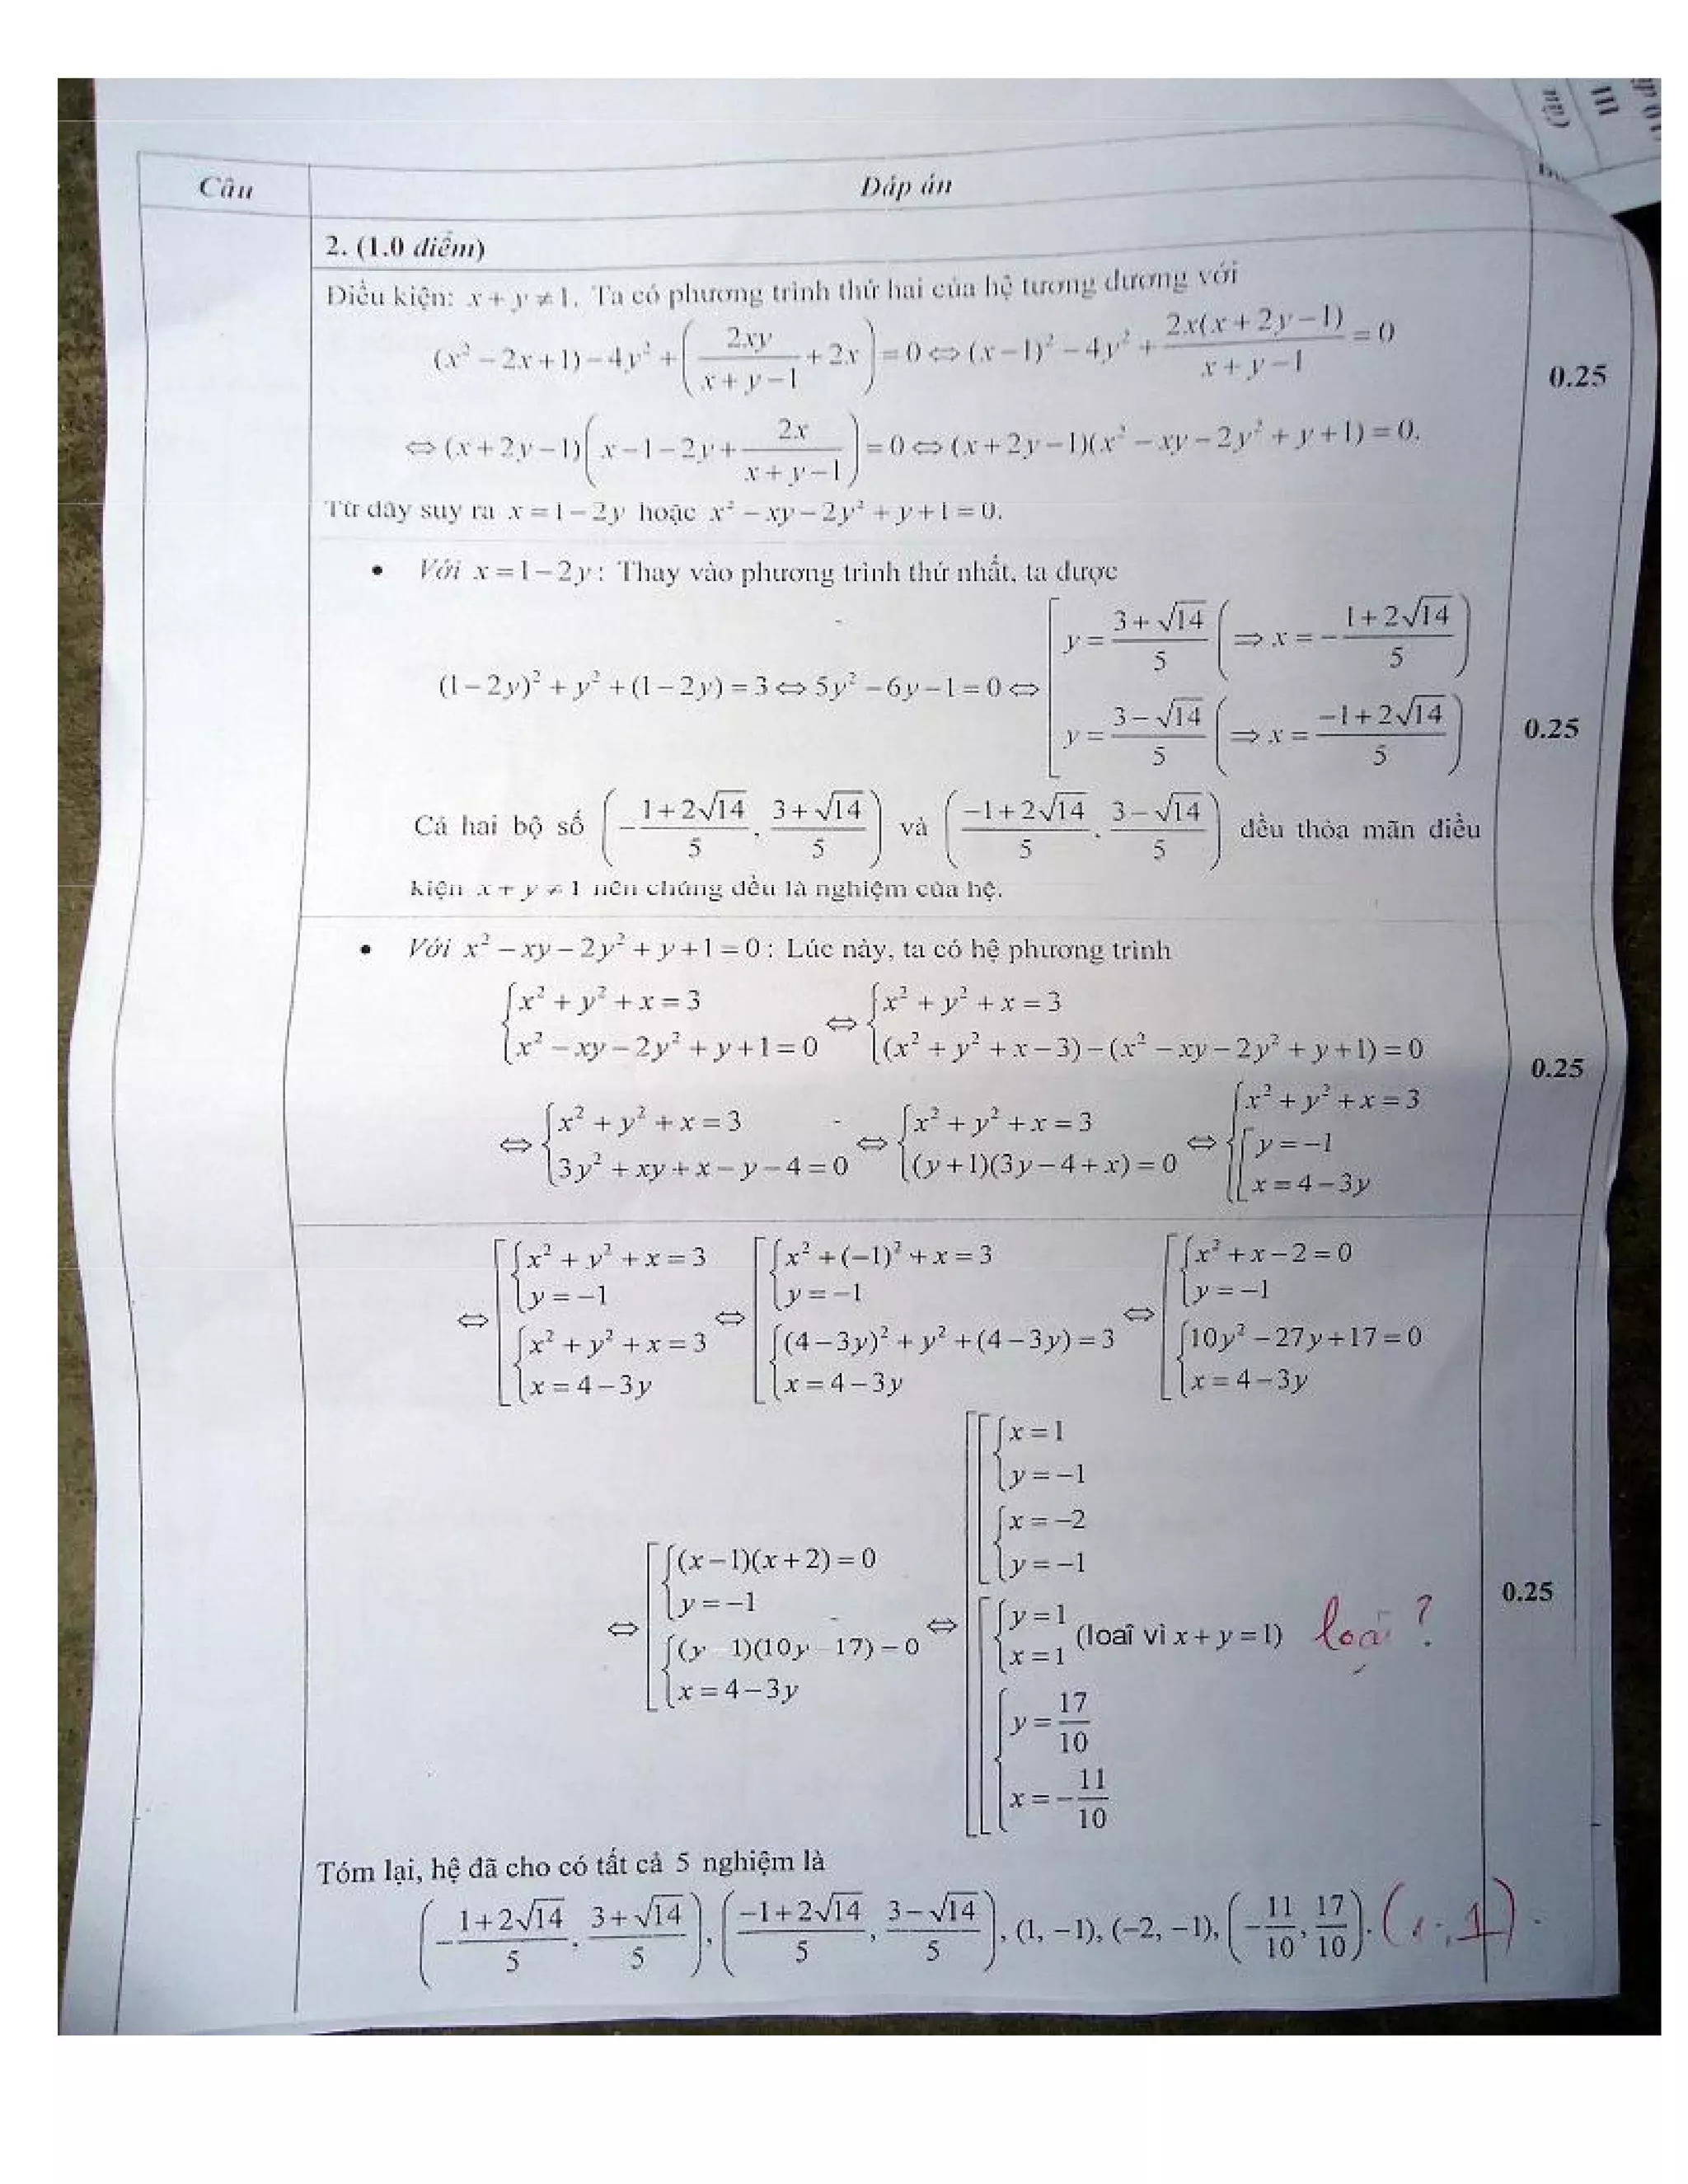 Câu Đáp án
2. (1.0 điểm)
Điều kiện: x + y ≠ 1. Ta có phương trình thứ hai của hệ tương đương với
(x² − 2x + 1) − 4y² + (2xy/(x + y − 1) + 2x) = 0 ⇔ (x − 1)² − 4y² + 2x(x + 2y − 1)/(x + y − 1) = 0
0.25
⇔ (x + 2y − 1)(x − 1 − 2y + 2x/(x + y − 1)) = 0 ⇔ (x + 2y − 1)(x² − xy − 2y² + y + 1) = 0.
Từ đây suy ra x = 1 − 2y hoặc x² − xy − 2y² + y + 1 = 0.
• Với x = 1 − 2y : Thay vào phương trình thứ nhất, ta được
(1 − 2y)² + y² + (1 − 2y) = 3 ⇔ 5y² − 6y − 1 = 0 ⇔ [ y = (3 + √14)/5 (⇒ x = −(1 + 2√14)/5)
y = (3 − √14)/5 (⇒ x = (−1 + 2√14)/5)
0.25
Cả hai bộ số (−(1 + 2√14)/5, (3 + √14)/5) và ((−1 + 2√14)/5, (3 − √14)/5) đều thỏa mãn điều
kiện x + y ≠ 1 nên chúng đều là nghiệm của hệ.
• Với x² − xy − 2y² + y + 1 = 0 : Lúc này, ta có hệ phương trình
{ x² + y² + x = 3 ⇔ { x² + y² + x = 3
x² − xy − 2y² + y + 1 = 0 (x² + y² + x − 3) − (x² − xy − 2y² + y + 1) = 0
0.25
⇔ { x² + y² + x = 3 ⇔ { x² + y² + x = 3 ⇔ { x² + y² + x = 3
3y² + xy + x − y − 4 = 0 (y + 1)(3y − 4 + x) = 0 [ y = −1
x = 4 − 3y
⇔ [ { x² + y² + x = 3 ⇔ [ { x² + (−1)² + x = 3 ⇔ [ { x² + x − 2 = 0
y = −1 y = −1 y = −1
{ x² + y² + x = 3 { (4 − 3y)² + y² + (4 − 3y) = 3 { 10y² − 27y + 17 = 0
x = 4 − 3y x = 4 − 3y x = 4 − 3y
⇔ [ { (x − 1)(x + 2) = 0
y = −1
{ (y 1)(10y 17) = 0
x = 4 − 3y
⇔ [ [ { x = 1
y = −1
{ x = −2
y = −1
[ { y = 1
x = 1 (loaî vì x + y = 1) loại ?
{ y = 17/10
x = −11/10
0.25
Tóm lại, hệ đã cho có tất cả 5 nghiệm là
(−(1 + 2√14)/5, (3 + √14)/5), ((−1 + 2√14)/5, (3 − √14)/5), (1, −1), (−2, −1), (−11/10, 17/10).